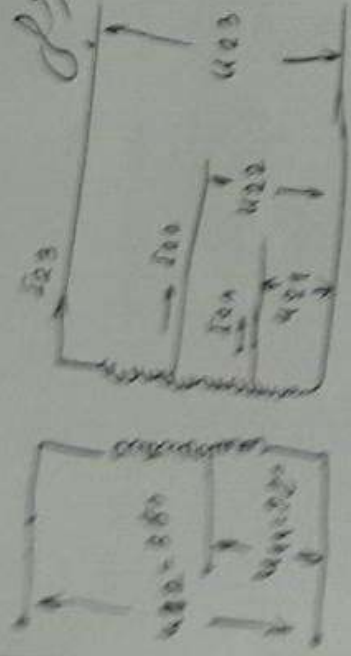 8)
I23
U23
I22
U22
I21
U21
U12 = 380
U11 = 220